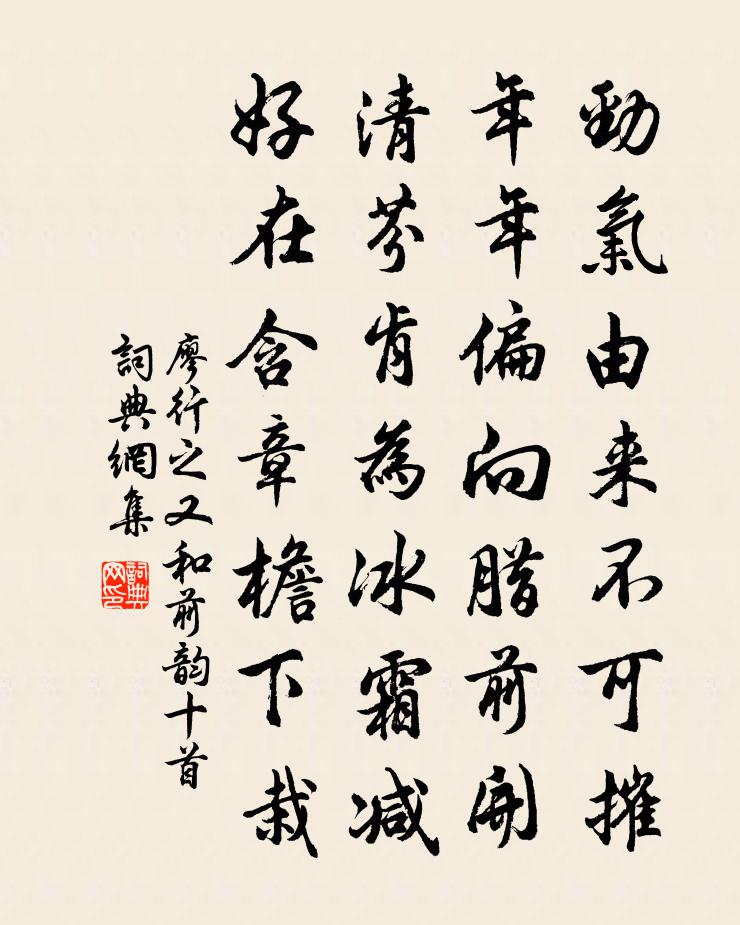 勁氣由来不可摧
年年偏向腊前開
清芬肯為冰霜减
好在含章檐下栽
廖行之又和前韵十首
詞典網集
詞典网印